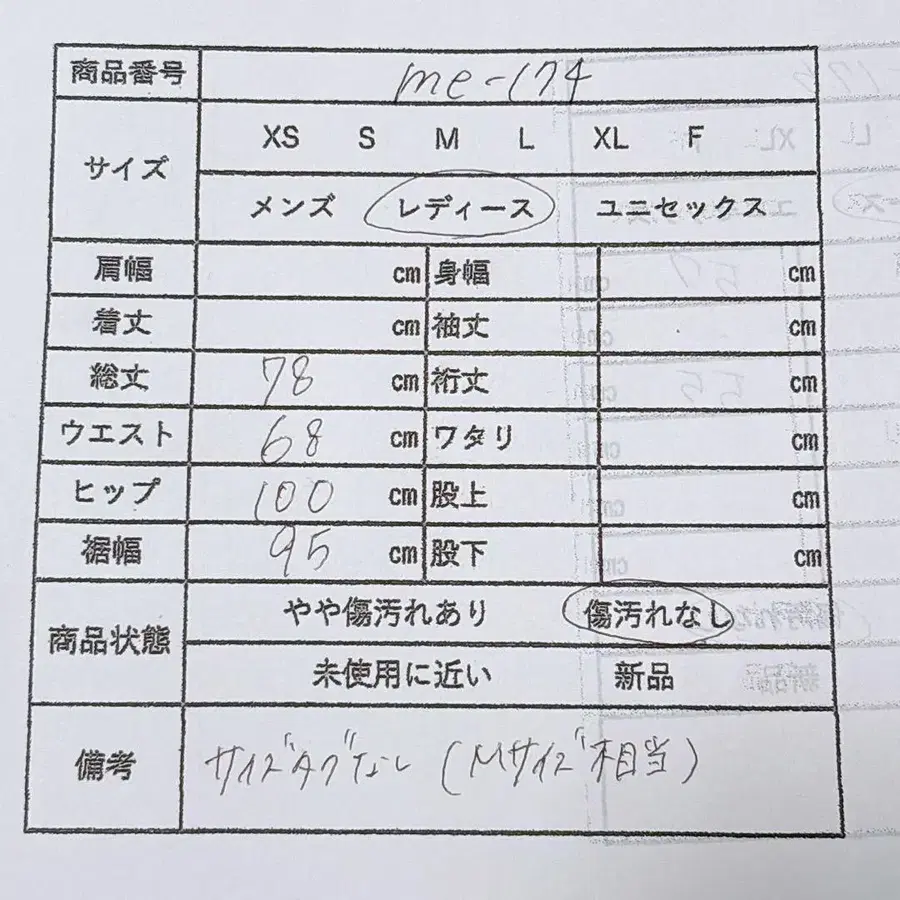 商品番号 me-174
サイズ XS S M L XL F
メンズ レディース ユニセックス
肩幅 cm 身幅 cm
着丈 cm 袖丈 cm
総丈 78 cm 裄丈 cm
ウエスト 68 cm ワタリ cm
ヒップ 100 cm 股上 cm
裾幅 95 cm 股下 cm
商品状態 やや傷汚れあり 傷汚れなし
未使用に近い 新品
備考 サイズタグなし (Mサイズ相当)